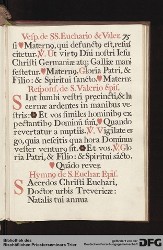 Vesp. de SS. Euchario & Valer. 75
si Materno, qui defuncto est, vitae
restitutor. ℣. Ut virtus Dni nostri Iesu
Christi Germaniæ atque Galliæ mani
festetur. Materno. Gloria Patri, &
Filio: & Spiritui sancto. Materni.
Respons. de S. Valerio Episc.
Sint lumbi vestri præcincti, & lu
cernæ ardentes in manibus ve
stris: Et vos similes hominibus ex
pectantibus Dominū suū, Quando
revertatur a nuptiis. ℣. Vigilate er
go, quia nescitis qua hora Dominus
vester venturus sit. Et vos. ℣. Glo
ria Patri, & Filio: & Spiritui sācto.
Quādo rever.
Hymno de S. Euchar. Epis.
Sacerdos Christi Euchari,
Doctor urbis Trevericæ:
Natalis tui annua
Bibliothek des
Bischöflichen Priesterseminars Trier
DFG